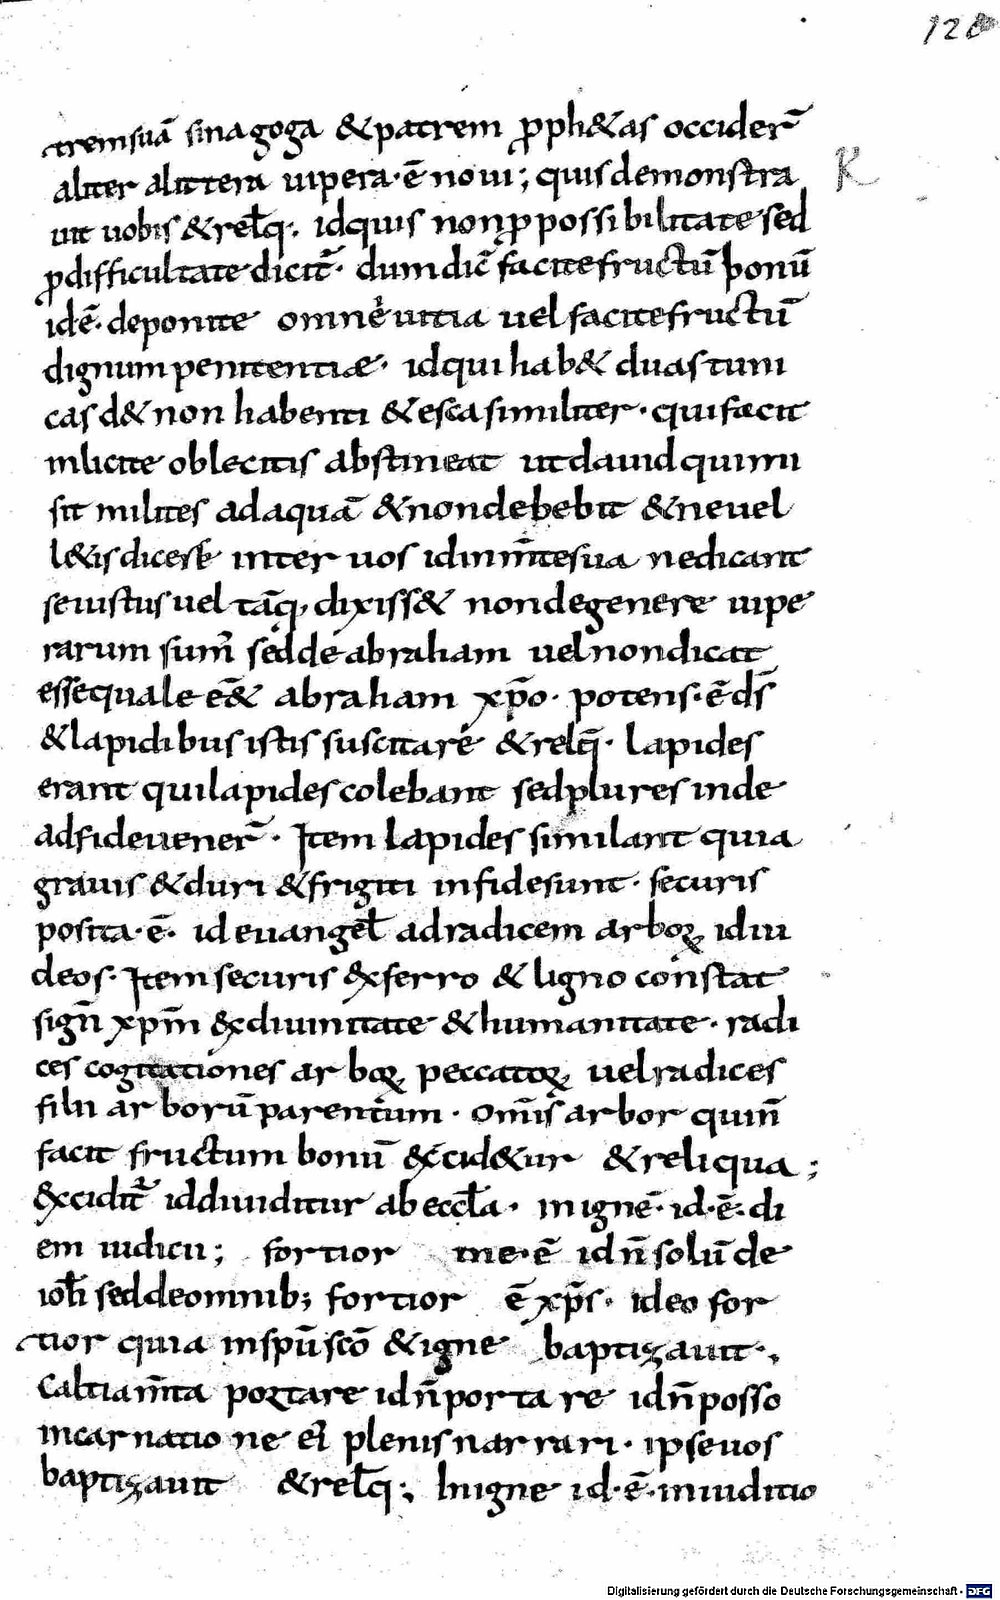 128
tremsuā sinagoga & patrem p̱ph&as occider̄
aliter alittera uipera·ē noui; quis demonstra
K
uit uobis & relq̄·, id quis non p̱ possibilitate sed
p̱ difficultate dicit̄· dum dic̄ facite fructū bonū
id·ē· deponite omne uitia uel facite fructū
dignum penitentiæ· id qui hab& duas tuni
cas d& non habenti & esca similiter· qui facit
inlicite oblecitis abstineat ut dauid qui mi
sit milites ad aquā & non debebit & ne uel
l&is dicere inter uos id in m̄te sua ne dicant
se iustus uel tāq, dixiss& non de genere uipe
rarum sum̄ sed de abraham uel non dicat
esse quale ē& abraham xp̄o· potens·ē ds̄
& lapidibus istis suscitare & relq̄· lapides
erant qui lapides colebant sed plures inde
ad fide uener̄· Item lapides similant quia
grauis & duri & frigiti in fide sunt· securis
posita·ē· id euangel̄ ad radicem arboꝝ id iu
deos· Item securis &xferro & ligno constat
sign̄ xpm̄ &x diuinitate & humanitate· radi
ces cogitationes arboꝝ peccatoꝝ uel radices
filii arborū parentum· om̄is arbor qui n̄
facit fructum bonū &xcid&ur & reliqua;
&xcidit̄ id diuiditur ab eccl̄a· in igne· id·ē· di
em iudicii; fortior me·ē id n̄ solū de
ioh̄i sed de omnib; fortior ē xp̄s· ideo for
tior quia in spū sc̄o & igne baptizauit·,
Caltiam̄ta portare id n̄ portare id n̄ posso
incarnatione ei plenis narrari· ipse uos
baptizauit & relq̄·, In igne id·ē· in iuditio
Digitalisierung gefördert durch die Deutsche Forschungsgemeinschaft - DFG